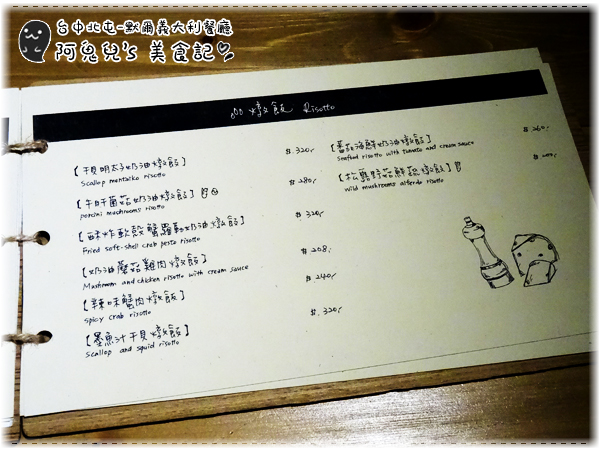 台中北屯-默爾義大利餐廳
阿兒兒's 美食記
燉飯 Risotto
【干貝明太子奶油燉飯】 $.320/
Scallop mentaiko risotto
【牛肝菌菇奶油燉飯】 $.280/
porcini mushrooms risotto
【酥炸軟殼蟹羅勒奶油燉飯】 $.320/
Fried soft-shell crab pesto risotto
【奶油蘑菇雞肉燉飯】 $.208/
Mushroom and chicken risotto with cream sauce
【辣味蟹肉燉飯】 $.240/
Spicy crab risotto
【墨魚汁干貝燉飯】 $.320/
Scallop and squid risotto
【蕃茄海鮮奶油燉飯】 $.260/
Seafood risotto with tomato and cream sauce
【松露野菇鮮蔬燉飯】
wild mushrooms alfredo risotto